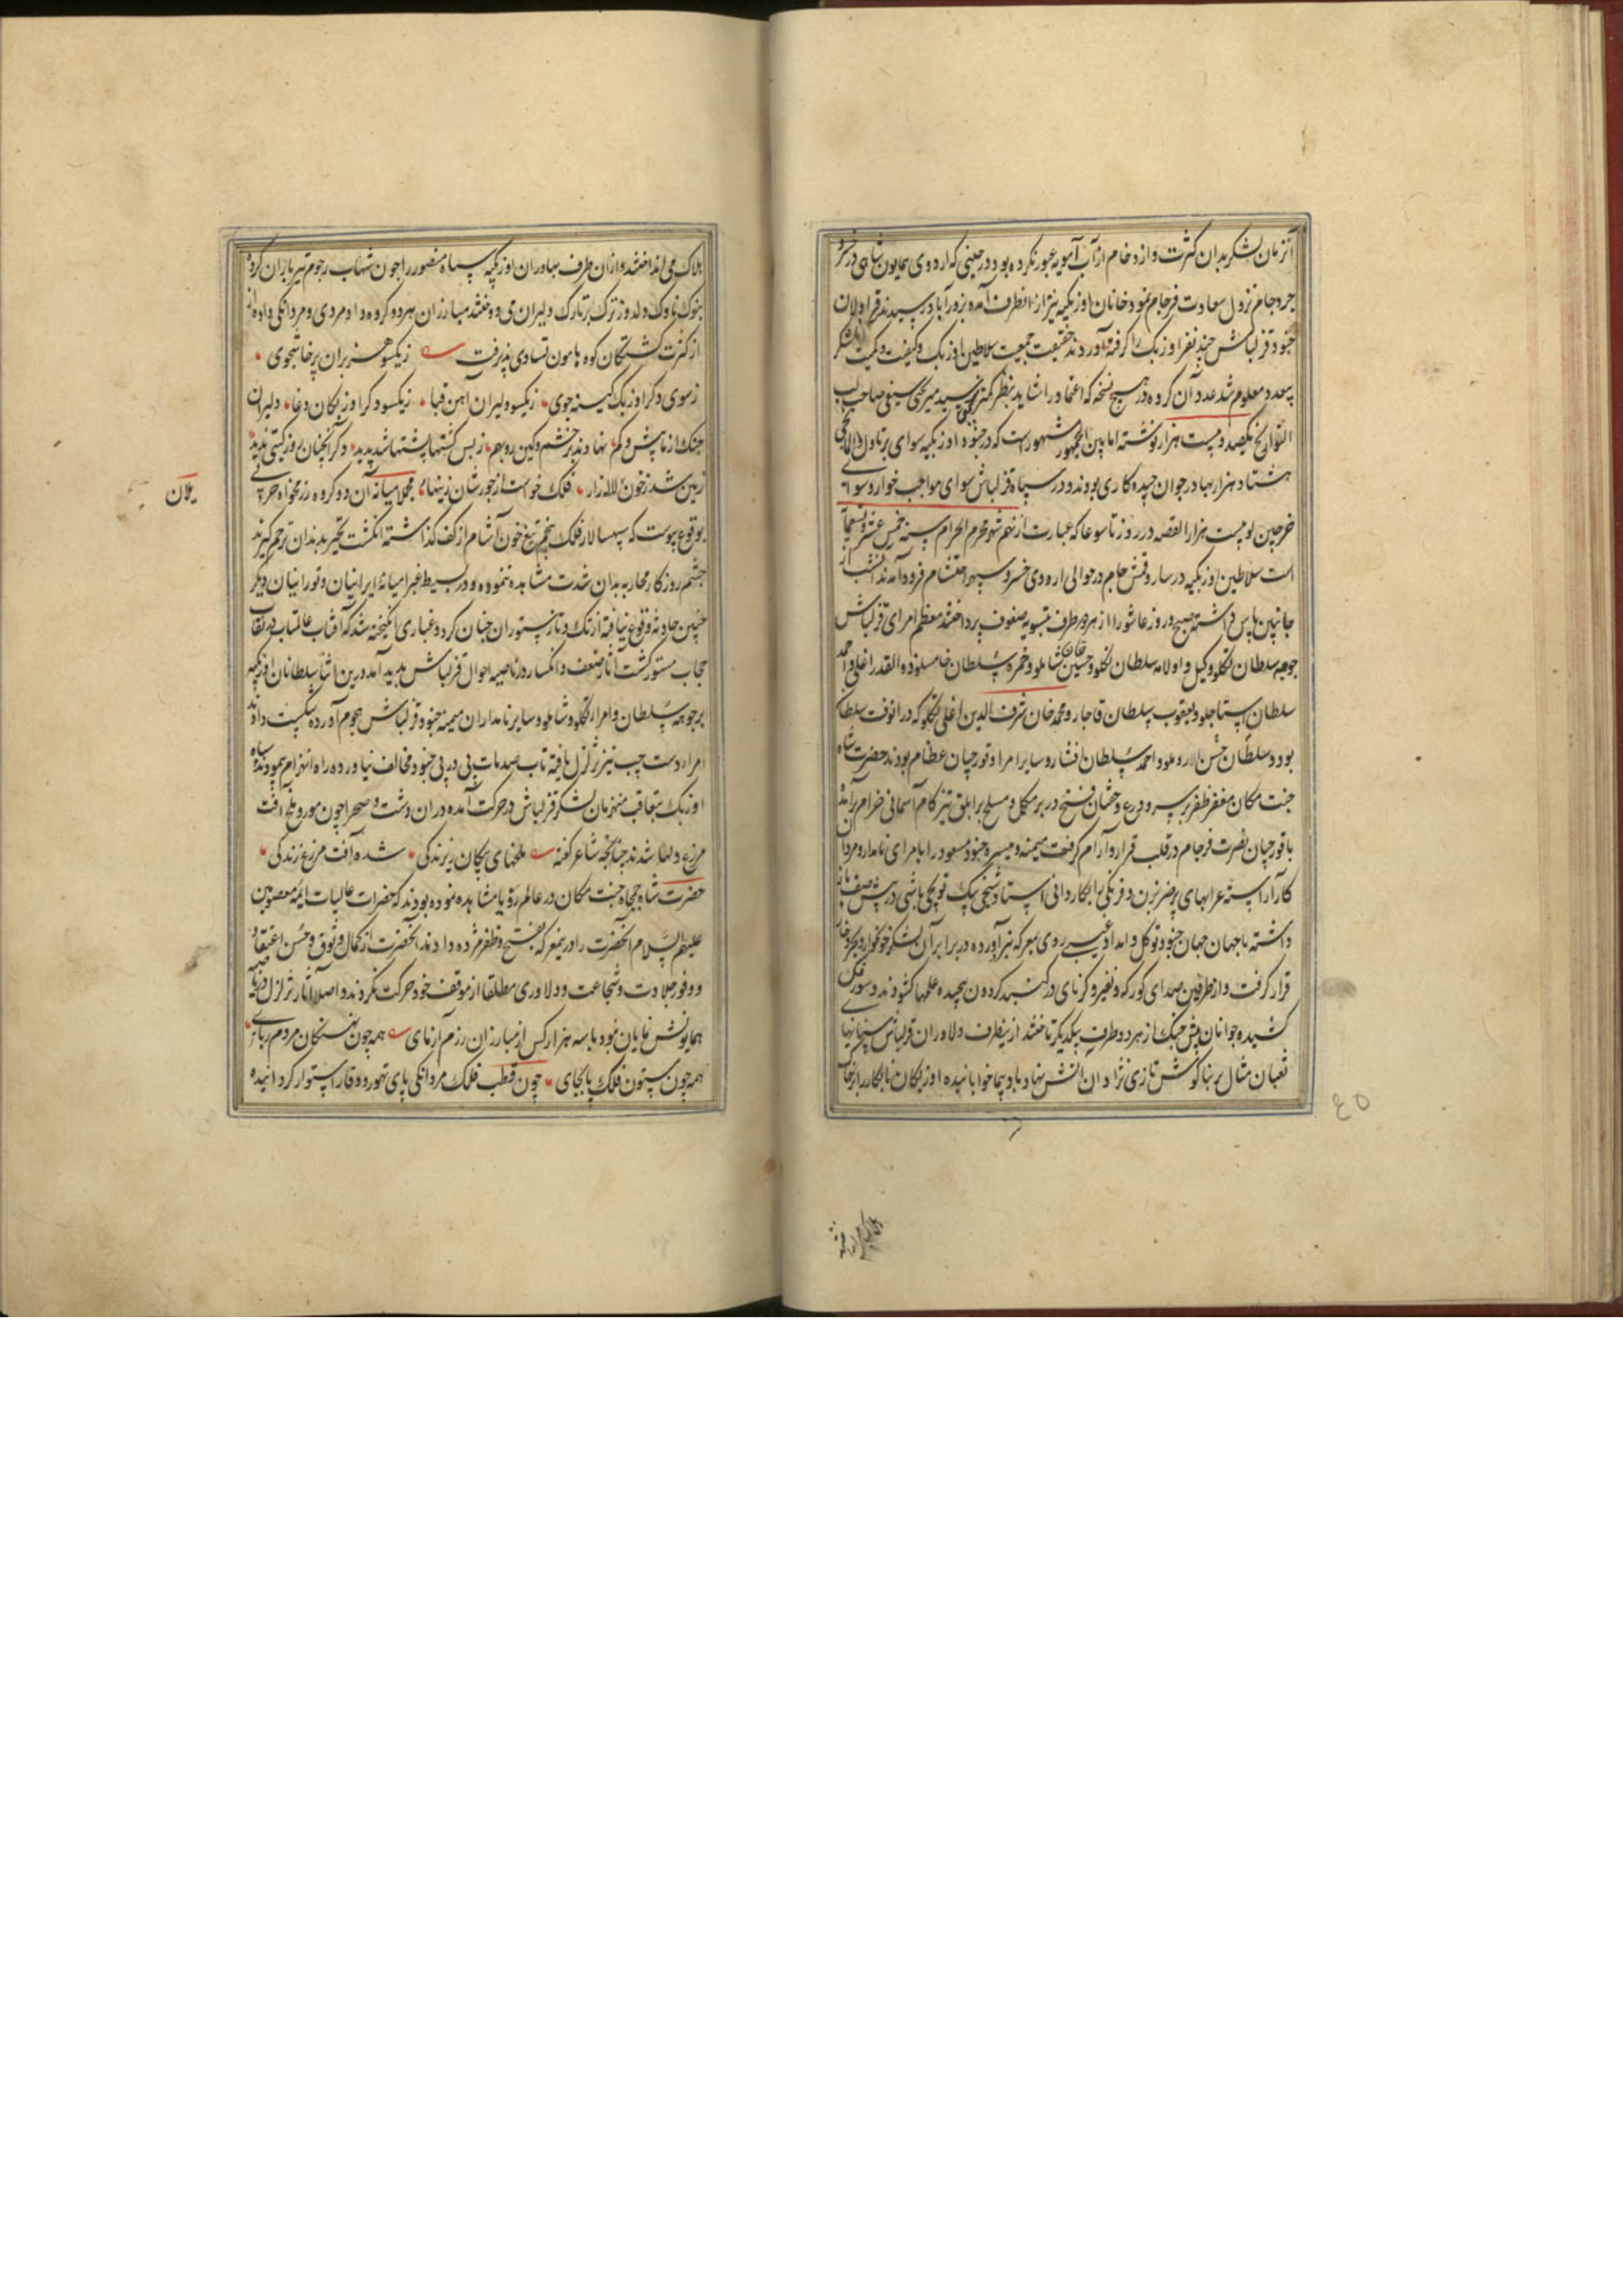 آنزمان لشکر بدان کثرت و ازدحام از آب آمویه عبور نکرده بود در حینی که اردوی همایون شاهی در
جرد جام نزول سعادت فرجام نمود خانان اوزبکیه نیز از انطرف آمده بزورآباد رسیدند قراولان
جنود قزلباش چند نفر اوزبک را گرفته آوردند حقیقت جمعیت سلاطین اوزبک و کیفیت و کمیت لشکر
بیعدد معلوم شد عدد آن گروه در هیچ نسخه که اعتماد را شاید بنظر کمترین نرسید میر یحیی سیفی صاحب لب
التواریخ یکصد و بیست هزار نوشته اما بین الجمهور مشهور است که در جنود اوزبکیه سوای پرتاول و الامانچی
هشتاد هزار بهادر جوان چیده کاری بودند و در سپاه قزلباش سوای مواجب خوار و سوای
خرجین لو بیست هزار القصه در روز تاسوعا که عبارت از نهم شهر محرم الحرام سنه خمس عشر و تسعمایه
است سلاطین اوزبکیه در سارو قمش جام در حوالی اردوی خسرو سپهر احتشام فرود آمدند آنشب از
جانبین پاس داشته صبح روز عاشورا از هر دو طرف بتسویه صفوف پرداختند معظم امرای قزلباش
جوهه سلطان تکلو وکیل و اولامه سلطان تکلو و حسین خان شاملو و حمزه سلطان خامسلو ذو القدر اغلی و احمد
سلطان استاجلو و یعقوب سلطان قاجار و محمد خان شرف الدین اغلی تکلو که در انوقت سلطان
بود و سلطان حسن لار دملو و احمد سلطان افشار و سایر امرا و قورچیان عظام بودند حضرت شاه
جنت مکان مغفر ظفر بر سر و درع و خفتان فتح در بر مکمل و مسلح بر ابلق تیز کام آسمانی خرام برآمده
با قورچیان نصرت فرجام در قلب قرار و آرام گرفت میمنه و میسره جنود مسعود را بامرای نامدار و مردان
کار آراسته عرابهای پر ضربزن و فرنگی را بکاردانی استاد شیخی بیک توپچی باشی در پیش صف باز
داشته با جهان جهان جنود توکل و امداد غیب روی بمعرکه نبرد آورده در برابر آن لشکر خونخوار
قرار گرفت و از طرفین صدای کورکه و نفیر و کرنای در گنبد گردون پیچیده علمها گشودند و سورن
کشیده جوانان پیش جنگ از هر دو طرف بیکدیگر تاختند ازینطرف دلاوران قزلباش سنانها
ثعبان مثال بر بناگوش تازی نژادان آتش نهاد بادپیما خوابانیده اوزبکان نابکار را بر خاک
۴۵
هلاک می انداختند
هلاک می انداختند و از ان طرف بهادران اوزبکیه سپاه منصور را چون شهاب رجوم تیر باران کرده
بنوک ناوک دلدوز ترک بر تارک دلیران می دوختند مبارزان هر دو گروه داد مردی و مردانگی داده
از کثرت کشتگان کوه با هامون تساوی پذیرفت زیکسو هزبران پرخاشجوی
ز سوی دگر اوزبک کینه جوی زیکسو دلیران آهن قبا زیکسو دگر اوزبکان دغا دلیران
جنگ آزما پیش و کم نهادند بر خشم و کین رو بهم ز بس کشتها پشتها شد پدید دگر آنچنان روز گیتی ندید
زمین شد ز خون لاله زار فلک خواست از جورشان زینهار مجملا میانه آن دو گروه رزمخواه حربی
بوقوع پیوست که سپهسالار فلک پنجم تیغ خون آشام از کف گذاشته انگشت تحیر بدندان ترحم گیرند
چشم روزگار محاربه بدان شدت مشاهده ننموده و در بسیط غبرا میانه ایرانیان و تورانیان دیگر
چنین حادثه وقوع نیافته از تک و تاز ستوران چنان گرد و غباری انگیخته شد که آفتاب عالمتاب در نقاب
حجاب مستور گشت آثار ضعف و انکسار در ناصیه احوال قزلباش پدید آمد درین اثنا سلطانان اوزبکیه
بر جوهه سلطان و امراء تکلو و شاملو و سایر نامداران میمنه جنود قزلباش هجوم آورده شکست دادند
امراء دست چپ نیز تزلزل یافته تاب صدمات پی در پی جنود مخالف نیاورده راه انهزام پیمودند سپاه
اوزبک بتعاقب منهزمان لشکر قزلباش در حرکت آمده در ان دشت و صحرا چون مور و ملخ آفت
مزرع دلها شدند چنانچه شاعر گفته ملخهای پیکان ریزندگی شده آفت مزرع زندگی
حضرت شاه جمجاه جنت مکان در عالم رؤیا مشاهده نموده بودند که حضرات عالیات ایمه معصومین
علیهم السلام آنحضرت را در ینمعرکه بفتح و ظفر مژده دادند آنحضرت از کمال وثوق و حسن اعتقاد
و وفور جلادت و شجاعت و دلاوری مطلقا از موقف خود حرکت نکردند و اصلا آثار تزلزل در ناصیه
همایونش نمایان نبود با سه هزار کس از مبارزان رزم آزمای همه چون نهنگان مردم ربای
همه چون ستون فلک پابجای چون قطب فلک مردانگی پای تهور و وقار استوار گردانیده
یلان